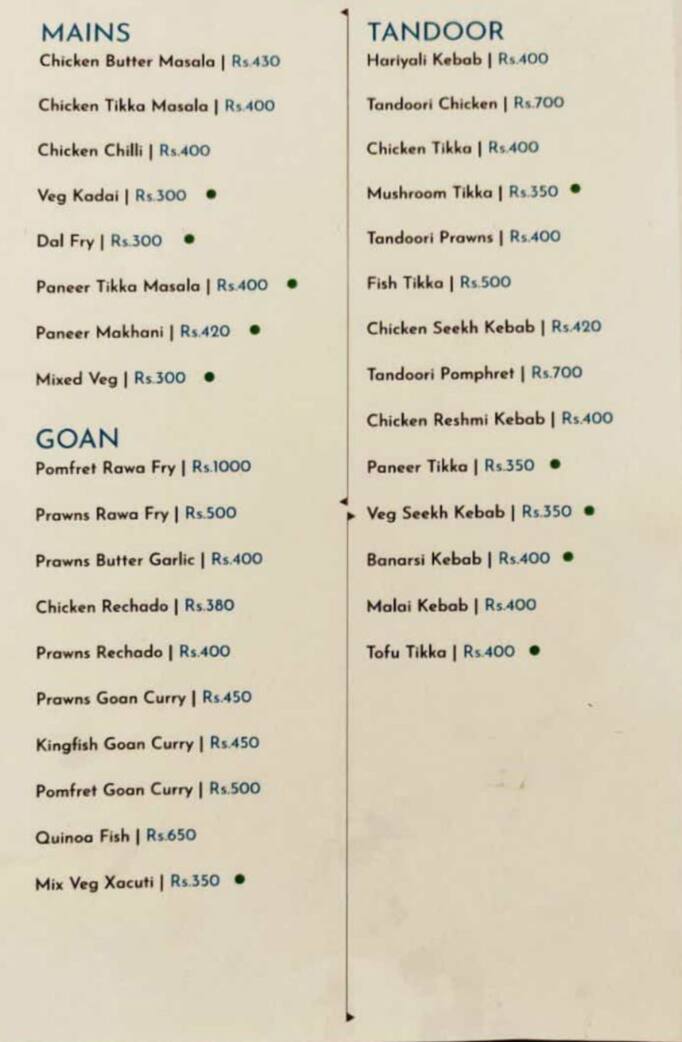 MAINS
Chicken Butter Masala | Rs.430
Chicken Tikka Masala | Rs.400
Chicken Chilli | Rs.400
Veg Kadai | Rs.300
Dal Fry | Rs.300
Paneer Tikka Masala | Rs.400
Paneer Makhani | Rs.420
Mixed Veg | Rs.300
GOAN
Pomfret Rawa Fry | Rs.1000
Prawns Rawa Fry | Rs.500
Prawns Butter Garlic | Rs.400
Chicken Rechado | Rs.380
Prawns Rechado | Rs.400
Prawns Goan Curry | Rs.450
Kingfish Goan Curry | Rs.450
Pomfret Goan Curry | Rs.500
Quinoa Fish | Rs.650
Mix Veg Xacuti | Rs.350
TANDOOR
Hariyali Kebab | Rs.400
Tandoori Chicken | Rs.700
Chicken Tikka | Rs.400
Mushroom Tikka | Rs.350
Tandoori Prawns | Rs.400
Fish Tikka | Rs.500
Chicken Seekh Kebab | Rs.420
Tandoori Pomphret | Rs.700
Chicken Reshmi Kebab | Rs.400
Paneer Tikka | Rs.350
Veg Seekh Kebab | Rs.350
Banarsi Kebab | Rs.400
Malai Kebab | Rs.400
Tofu Tikka | Rs.400